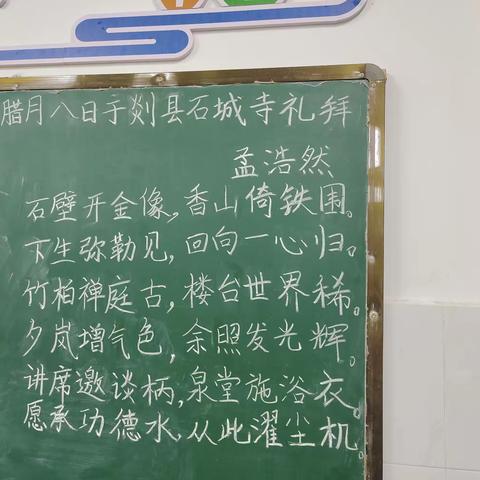 腊月八日于剡县石城寺礼拜
孟浩然
石壁开金像，香山倚铁围。
下生弥勒见，回向一心归。
竹柏禅庭古，楼台世界稀。
夕岚增气色，余照发光辉。
讲席邀谈柄，泉堂施浴衣。
愿承功德水，从此濯尘机。